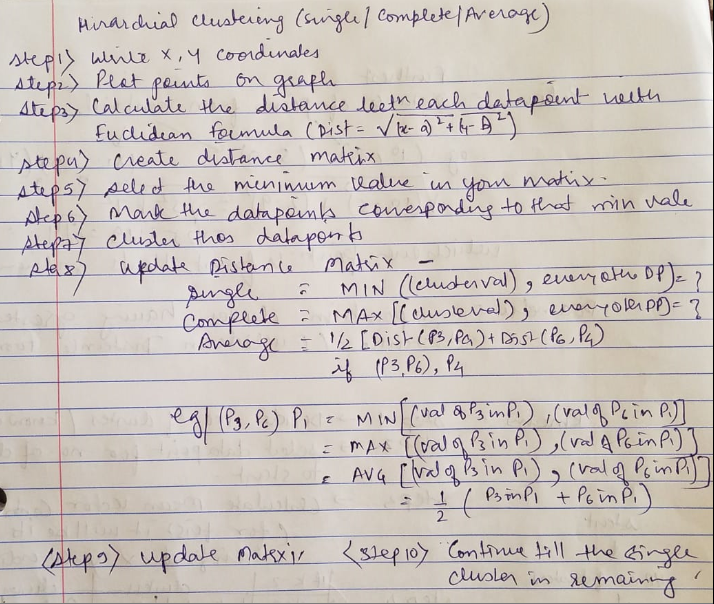 Hirarchial clustering (Single/Complete/Average)
Step1) Write x, y coordinates
Step2) Plot points on graph
Step3) Calculate the distance betn each datapoint with
Euclidean formula (Dist = √(x-a)²+(y-b)²)
Step4) Create distance matrix
Step5) Select the minimum value in your matrix.
Step6) Mark the datapoints corresponding to that min vale
Step7) Cluster thos datapoints
Ste8) Update Distance Matrix -
Single = MIN ((clusterval), every othe DP) = ?
Complete = MAX [(clusterval), every other DP) = ?
Average = 1/2 [Dist (P3, P4) + Dist (P6, P4)
if (P3, P6), P4
eg/ (P3, P6) P1 = MIN [(val of P3 in P1), (val of P6 in P1)]
= MAX [(val of P3 in P1), (val of P6 in P1)]
= AVG [(val of P3 in P1), (val of P6 in P1)]
= 1/2 ( P3 in P1 + P6 in P1)
<Step9> Update Matrix <Step10> Continue till the single
cluster in remaining